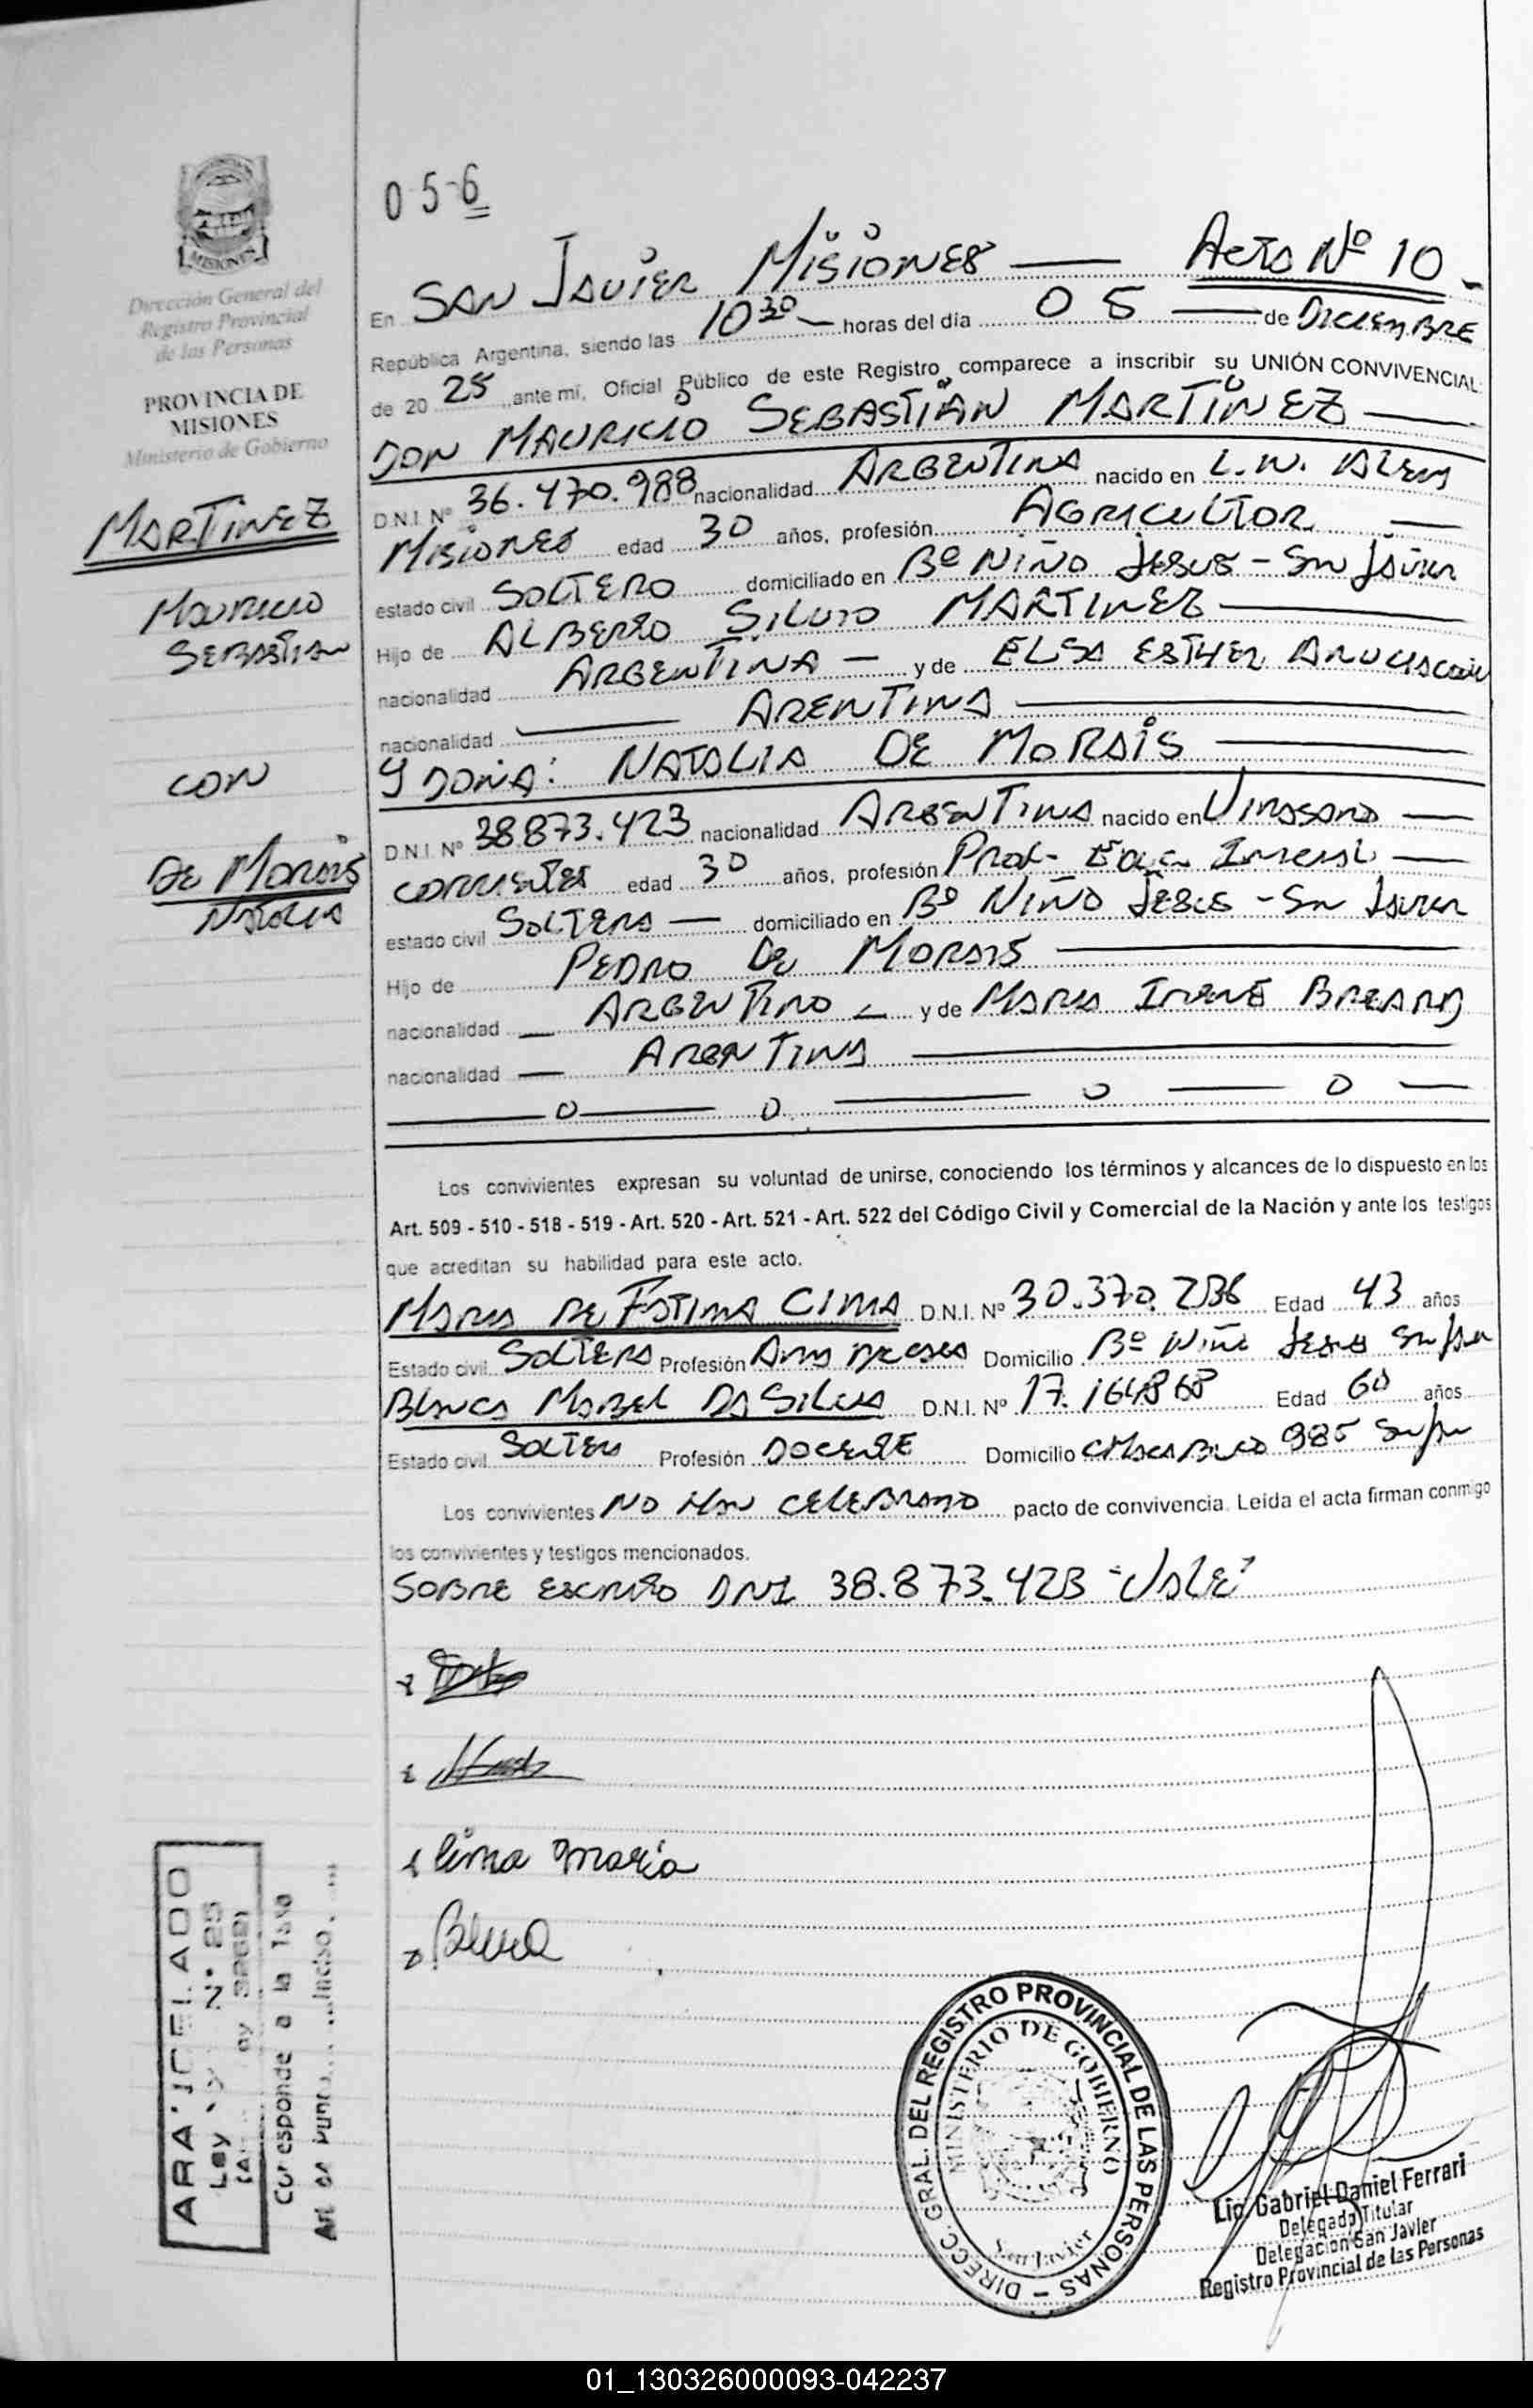 MISIONES
Dirección General del
Registro Provincial
de las Personas
PROVINCIA DE
MISIONES
Ministerio de Gobierno
MARTINEZ
MAURICIO
SEBASTIAN
CON
DE MORAIS
NATALIA
056
ACTA Nº 10
En SAN JAVIER MISIONES
República Argentina, siendo las 10 30 horas del día 05 de DICIEMBRE
de 20 25 ante mi, Oficial Público de este Registro comparece a inscribir su UNIÓN CONVIVENCIAL:
DON MAURICIO SEBASTIÁN MARTÍNEZ
D.N.I. Nº 36.470.988 nacionalidad ARGENTINA nacido en L.N. ALEM
MISIONES edad 30 años, profesión AGRICULTOR
estado civil SOLTERO domiciliado en Bº NIÑO JESUS - San Javier
Hijo de ALBERTO SILVIO MARTINEZ
nacionalidad ARGENTINA y de ELSA ESTHER
nacionalidad ARENTINA
Y DOÑA: NATALIA DE MORAIS
D.N.I. Nº 38.873.423 nacionalidad ARGENTINA nacido en VIRASORO
CORRIENTES edad 30 años, profesión Prof. Educ. Inicial
estado civil SOLTERA domiciliado en Bº NIÑO JESUS - San Javier
Hijo de PEDRO DE MORAIS
nacionalidad ARGENTINO y de MARIA IRENE BREARD
nacionalidad ARGENTINA
Los convivientes expresan su voluntad de unirse, conociendo los términos y alcances de lo dispuesto en los
Art. 509 - 510 - 518 - 519 - Art. 520 - Art. 521 - Art. 522 del Código Civil y Comercial de la Nación y ante los testigos
que acreditan su habilidad para este acto.
MARIA DE FATIMA CIMA D.N.I. Nº 30.370.236 Edad 43 años
Estado civil SOLTERA Profesión Ama de casa Domicilio Bº Niño Jesus San Jav
BLANCA MABEL DA SILVA D.N.I. Nº 17.164868 Edad 60 años
Estado civil SOLTERA Profesión DOCENTE Domicilio CHACABUCO 985 San Jav
Los convivientes NO HAN CELEBRADO pacto de convivencia. Leida el acta firman conmigo
los convivientes y testigos mencionados.
SOBRE ESCRITO DNI 38.873.423 "VALE"
Cima Maria
ARANCELADO
Ley Nº 25
Corresponde a la Tasa
Art. Inciso
DIRECC. GRAL. DEL REGISTRO PROVINCIAL DE LAS PERSONAS
MINISTERIO DE GOBIERNO
San Javier
Lic. Gabriel Daniel Ferrari
Delegado Titular
Delegación San Javier
Registro Provincial de las Personas
01_130326000093-042237